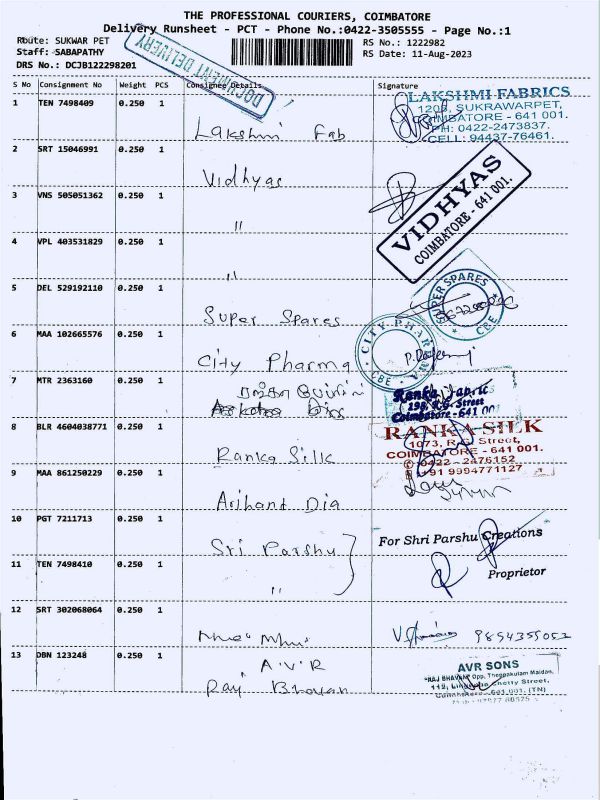 THE PROFESSIONAL COURIERS, COIMBATORE
Delivery Runsheet - PCT - Phone No.:0422-3505555 - Page No.:1
Route: SUKWAR PET
RS No.: 1222982
Staff: SABAPATHY
RS Date: 11-Aug-2023
DRS No.: DCJB122298201
DOCUMENT DELIVERY
S No Consignment No Weight PCS Consignee Details Signature
1 TEN 7498409 0.250 1 Lakshmi Fab
LAKSHMI FABRICS
SUKRAWARPET,
COIMBATORE - 641 001.
PH: 0422-2473837.
CELL: 94437-76461.
2 SRT 15046991 0.250 1 Vidhyas
VIDHYAS
COIMBATORE - 641 001.
3 VNS 505051362 0.250 1 "
4 VPL 403531829 0.250 1 "
5 DEL 529192110 0.250 1 Super Spares
SUPER SPARES
CBE
6 MAA 102665576 0.250 1 City Pharma
CITY PHARMA
CBE
7 MTR 2363160 0.250 1
Ranka Fabric
198, R.G. Street
Coimbatore - 641 001
8 BLR 4604038771 0.250 1 Ranka Silk
RANKA SILK
1073, R.G. Street,
COIMBATORE - 641 001.
0422 - 2476152
+91 9994771127
9 MAA 861250229 0.250 1 Arihant Dia
10 PGT 7211713 0.250 1 Sri Parshu
For Shri Parshu Creations
11 TEN 7498410 0.250 1 "
Proprietor
12 SRT 302068064 0.250 1
13 DBN 123248 0.250 1 A.V.R
Raj Bhavan
AVR SONS
"RAJ BHAVAN" Opp. Theppakulam Maidan,
Chetty Street,
Coimbatore - 641 001. (TN)